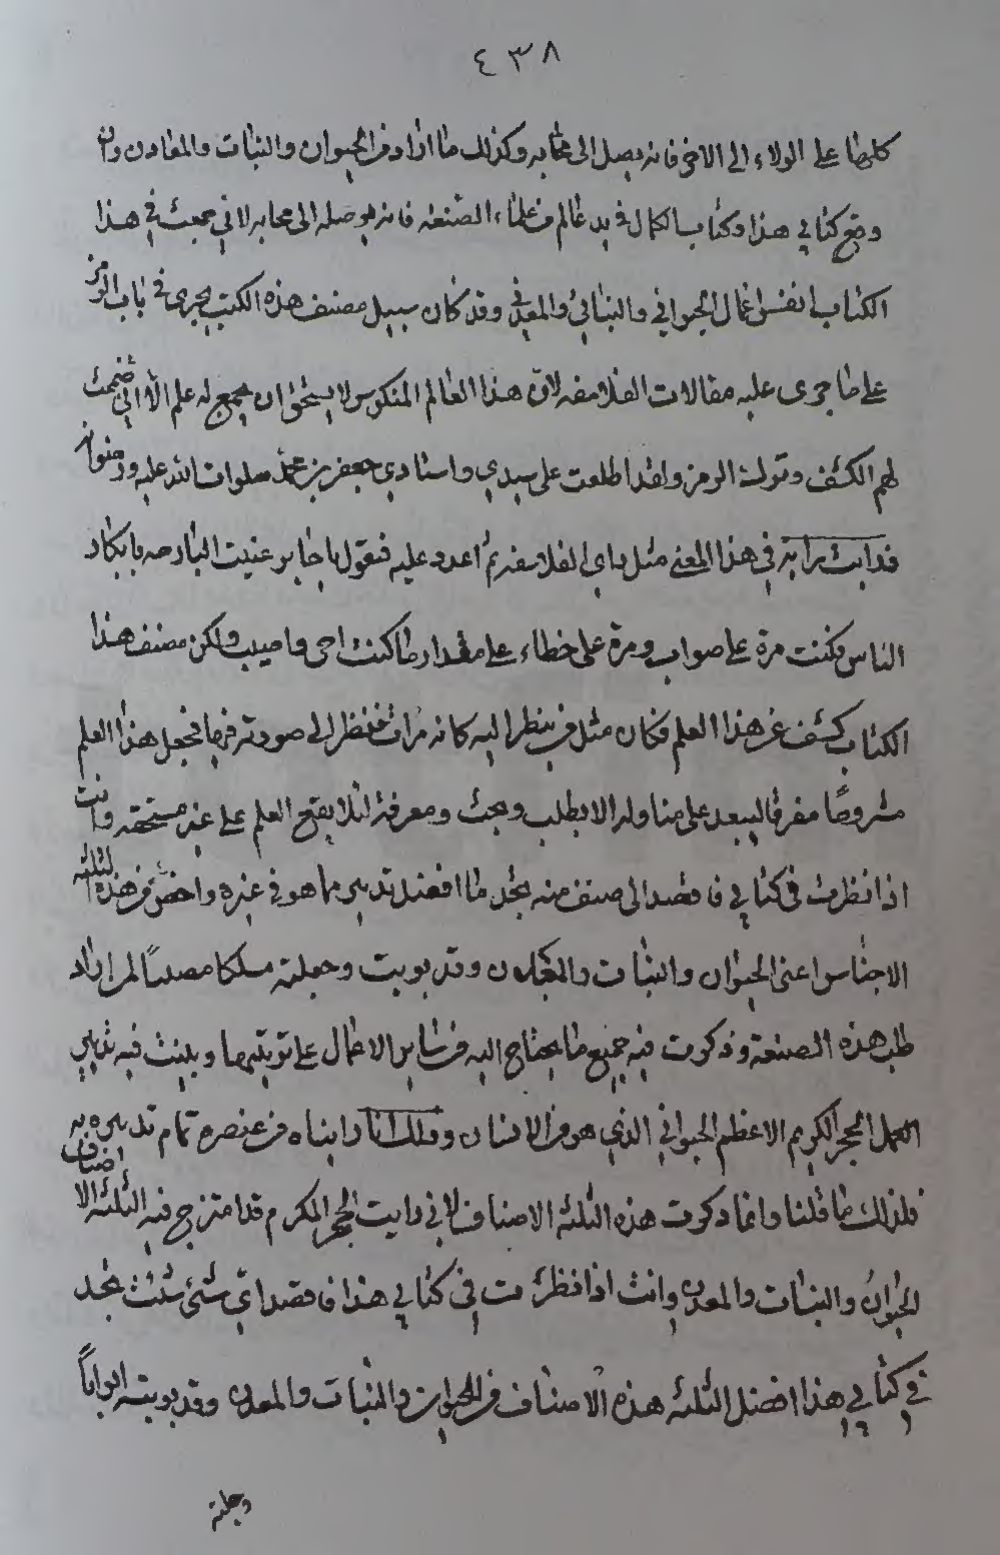 ٤٣٨
كلها على الولاء الى الاخر فانه يصل الى محابه وكذلك ما اراد من الحيوان والنبات والمعادن وان
وقع كتابي هذا وكتاب الكمال في يد عالم من علماء الصنعة فانه يوصله الى محابه لاني جمعت في هذا
الكتاب انفس اعمال الحيواني والنباتي والمعدني وقد كان سبيل مصنف هذه الكتب يجرى في باب الرمز
على ما جرى عليه مقالات الفلاسفه لان هذا العالم المنكوس لا يستحق ان يجمع له علم الا اني ضمنت
لهم الكشف وترك الرمز ولقد اطلعت على سيدي واستادي جعفر بن محمد صلوات الله عليه ورضوانه
فرايت رايه في هذا المعنى مثل راى الفلاسفه ثم اعدد عليه فيقول يا جابر عنيت البارحه بابكاد
الناس فكنت مرة على صواب ومرة على خطاء على مقدار ما كنت احى واميت ولكن مصنف هذا
الكتاب كشف عن هذا العلم فكان مثل من ينظر اليه كانه مرات فنظر الى صورته فيها فجعل هذا العلم
مشروحًا مفرقا ليبعد على متناوله الا بطلب وبحث ومعرفة لئلا يقع العلم على غير مستحقه وانت
اذا نظرت في كتابي فاقصد الى صنف منه تجد ما افضل تدبير مما هو في غيره واخص من هذه الثلثه
الاجناس اعنى الحيوان والنبات والمعادن وقد بوبت وجعلته مسلكا مصدرًا لمن اراد
طلب هذه الصنعة وذكرت فيه جميع ما يحتاج اليه من ساير الاعمال على ترتيبها وبينت فيه تدبير
العمل الحجر الكريم الاعظم الحيواني الذي هو من الانسان وذلك انا راينا من عنصره تمام تدبيره به
فلذلك ما قلنا وانما ذكرت هذه الثلثه الاصناف لاني رايت الحجر المكرم قد امتزج فيه الثلثه الاصناف
الحيوان والنبات والمعدن وانت اذا نظرت في كتابي هذا فاقصد اى شئ شئت تجد
في كتابي هذا افضل الثلثه هذه الاصناف من الحيوان والنبات والمعدن وقد بوبته ابوابًا
وجعلته